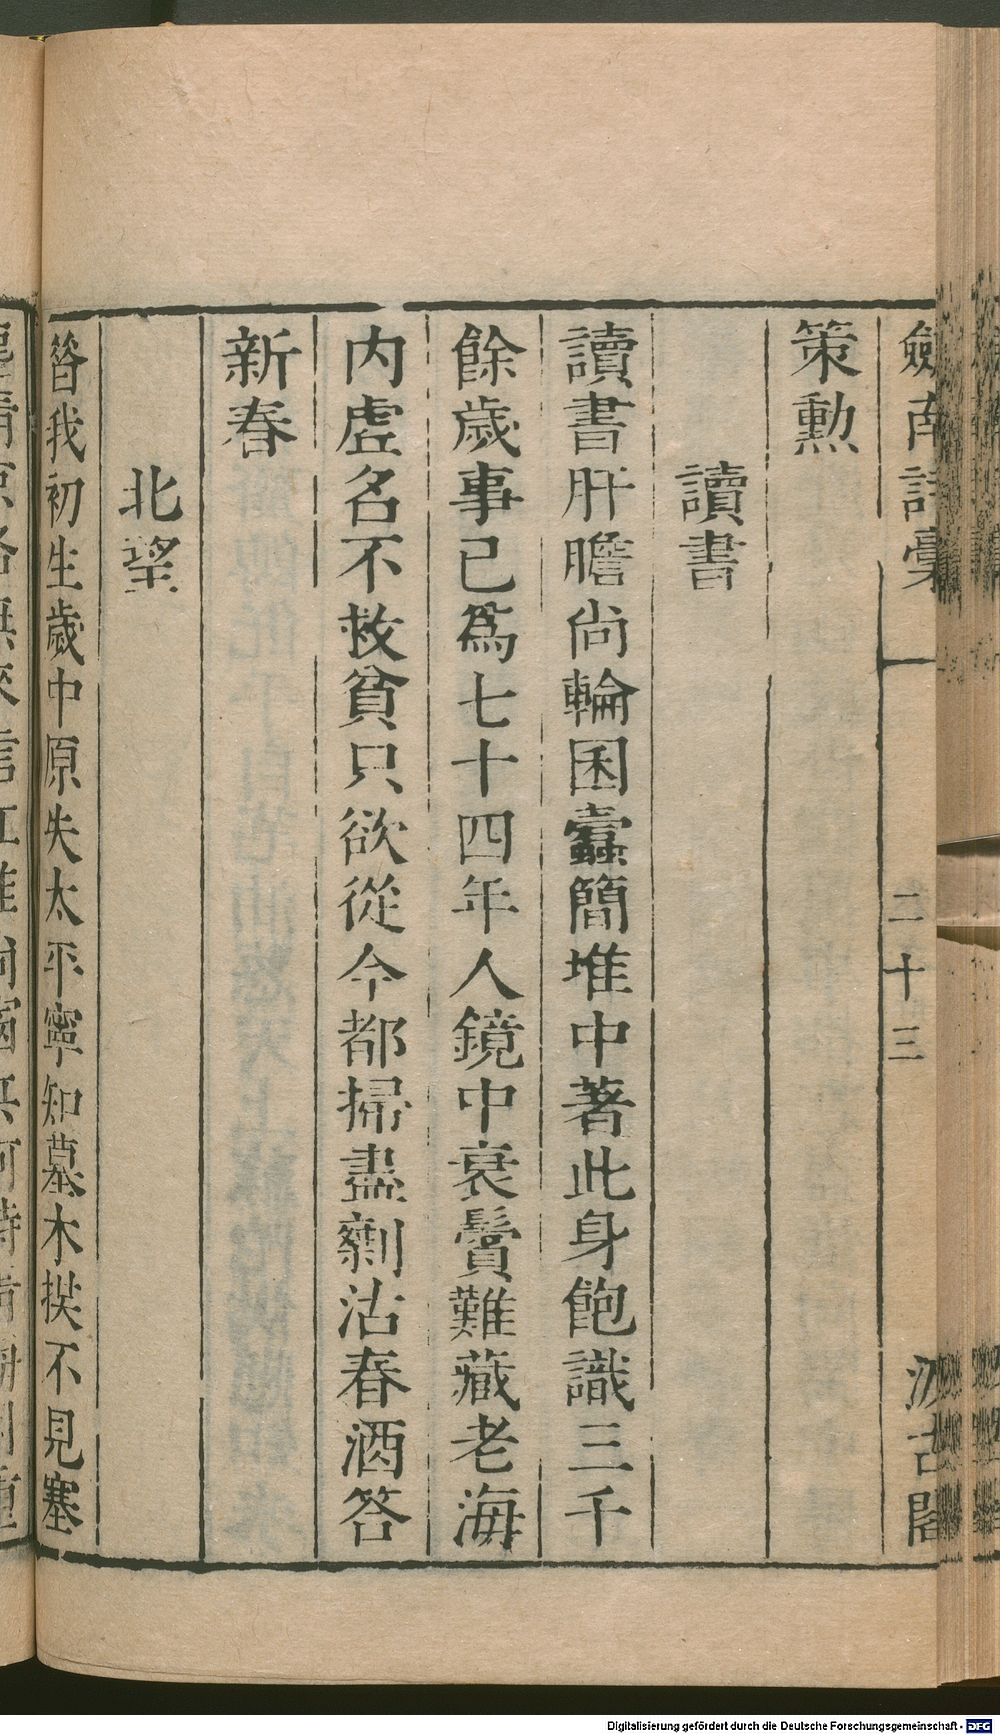 劔南詩稾
二十三
汲古閣
策勲
讀書
讀書肝膽尚輪囷蠹簡堆中著此身飽識三千
餘歲事已爲七十四年人鏡中衰鬢難藏老海
内虚名不救貧只欲從今都掃盡剩沽春酒答
新春
北望
昝我初生歲中原失太平寧知墓木拱不見塞
Digitalisierung gefördert durch die Deutsche Forschungsgemeinschaft - DFG